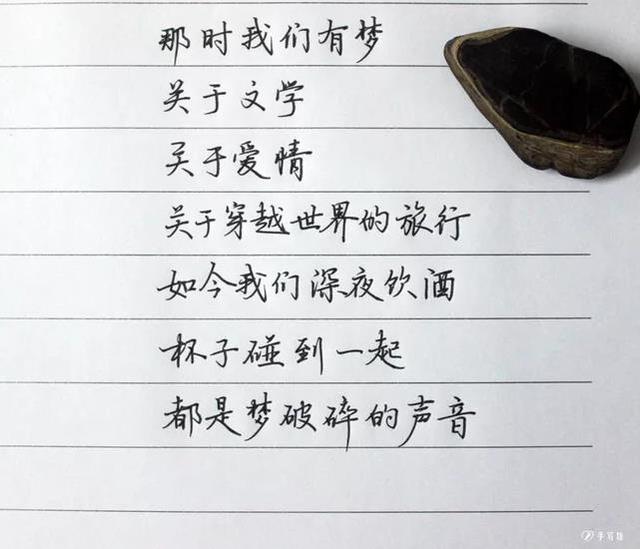 那时我们有梦
关于文学
关于爱情
关于穿越世界的旅行
如今我们深夜饮酒
杯子碰到一起
都是梦破碎的声音